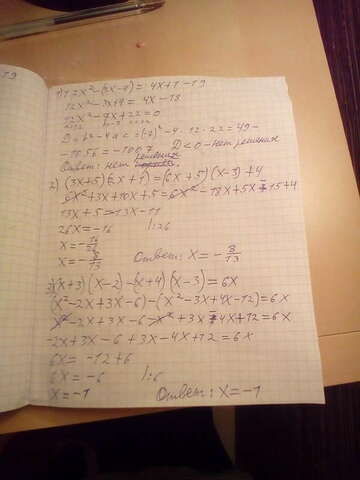 1) 12x²-(3x-9)= 4x+1-19
12x²-3x+9= 4x-18
12x²-7x+22=0
D=b²-4ac=(-7)²-4·12·22=49-
-1056=-1007 D<0-нет решения
Ответ: нет решения
2) (3x+5)(2x+1)=(6x+5)(x-3)+4
6x²+3x+10x+5=6x²-18x+5x-15+4
13x+5=-13x-11
26x=-16 |:26
x=-16/26
x=-8/13 Ответ: x=-8/13
3) (x+3)(x-2)-(x+4)(x-3)=6x
(x²-2x+3x-6)-(x²-3x+4x-12)=6x
x²-2x+3x-6-x²+3x-4x+12=6x
-2x+3x-6+3x-4x+12=6x
6x=-12+6
6x=-6 |:6
x=-1 Ответ: x=-1